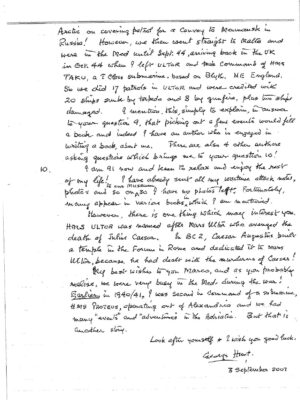 Arctic on covering patrol for a Convoy to Murmansk in
Russia! However, we then went straight to Malta and
were in the Med until Sept. 44, arriving back in the UK
in Oct 44 when I left ULTOR and took Command of HMS
TAKU, a T Class submarine, based on Blyth, NE England.
So we did 17 patrols in ULTOR and were credited with
20 ships sunk by torpedo and 8 by gunfire, plus two ships
damaged. I mention this, simply to explain, in answer
to your question 9, that picking out a few events would fill
a book and indeed I have an author who is engaged in
writing a book about me. There are also 4 other authors
asking questions which brings me to your question 10!
10. I am 91 now and keen to relax and enjoy the rest
of my life! I have already sent all my wartime attack notes,
photos and so on to our museum. I have no photos left. Fortunately,
many appear in various books in which I am mentioned.
However, there is one thing which may interest you.
HMS ULTOR was named after Mars Ultor who avenged the
death of Julius Caesar. In BC 2, Caesar Augustus built
a temple in the Forum in Rome and dedicated it to Mars
Ultor, because he had dealt with the murderers of Caesar!
My best wishes to you Marco, and as you probably
realise, we were very busy in the Med. during the war!
Earlier, in 1940/41, I was second in command of a submarine,
HMS PROTEUS, operating out of Alexandria and we had
many "events" and "adventures" in the Adriatic. But that is
another story.
Look after yourself & I wish you good luck.
George Hunt.
8 September 2007